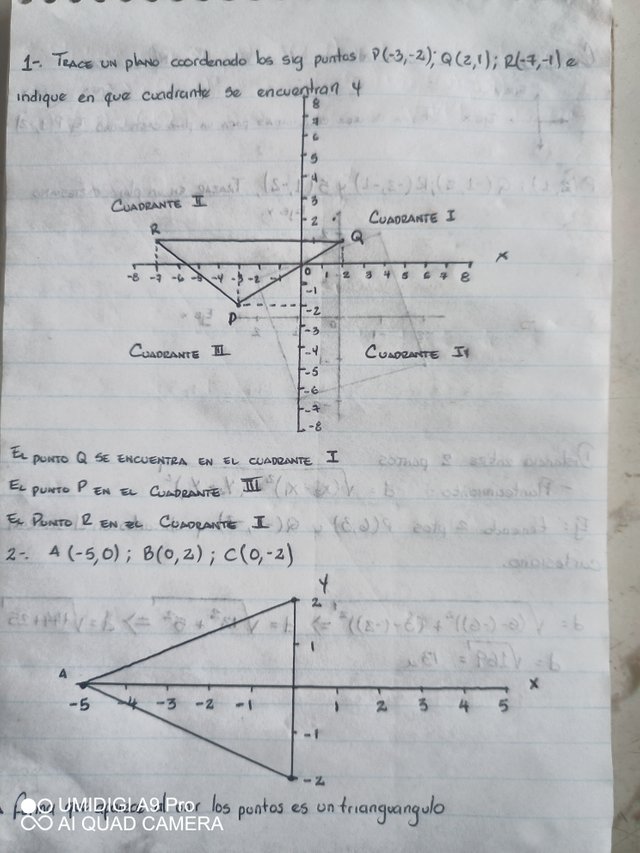 1-. TRACE UN PLANO COORDENADO los sig puntos P(-3,-2); Q(2,1); R(-7,-1) e
indique en que cuadrante se encuentran y
8
7
6
5
4
3
2
CUADRANTE II
CUADRANTE I
R
Q
x
-8 -7 -6 -5 -4 -3 -2 -1 0 1 2 3 4 5 6 7 8
-1
P
-2
-3
CUADRANTE III
-4
CUADRANTE IV
-5
-6
-7
-8
EL PUNTO Q SE ENCUENTRA EN EL CUADRANTE I
EL PUNTO P EN EL CUADRANTE III
EL PUNTO R EN EL CUADRANTE I
2-. A(-5,0); B(0,2); C(0,-2)
y
2
1
A
x
-5 -4 -3 -2 -1 1 2 3 4 5
-1
-2
los puntos es un trianguangulo
UMIDIGI A9 Pro
AI QUAD CAMERA